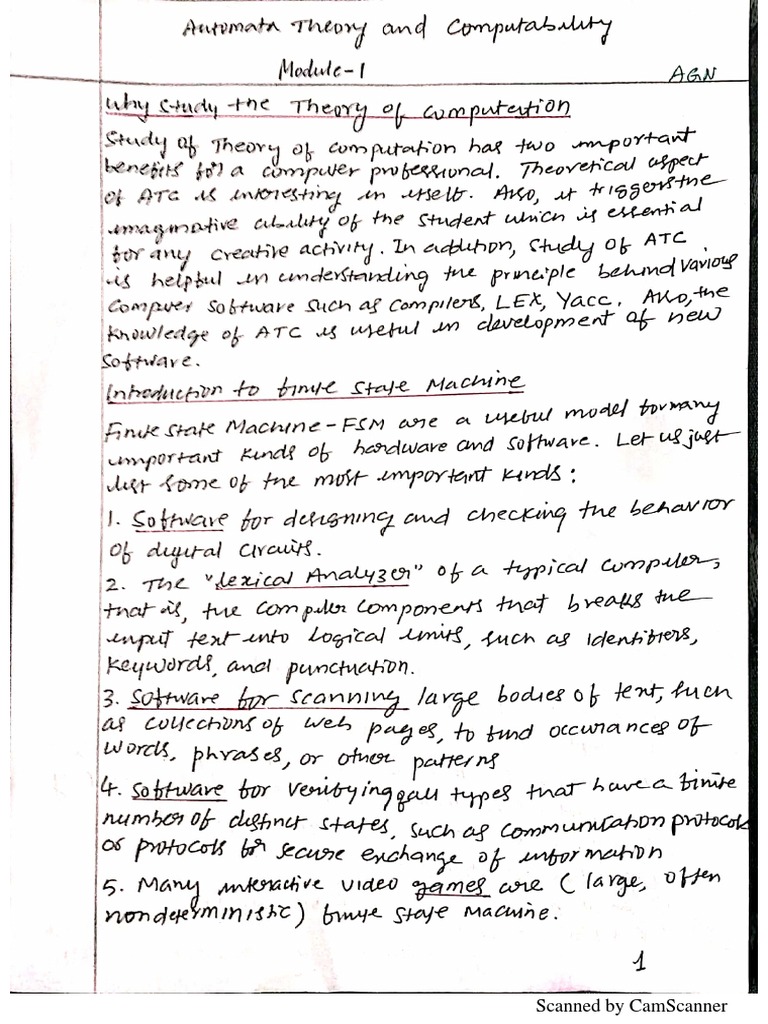 Automata Theory and Computability
Module-1
AGN
Why Study the Theory of Computation
Study of Theory of computation has two important
benefits for a computer professional. Theoretical aspect
of ATC is interesting in itself. Also, it triggers the
imaginative ability of the student which is essential
for any creative activity. In addition, Study of ATC
is helpful in understanding the principle behind various
Computer Software such as Compilers, LEX, Yacc. Also, the
knowledge of ATC is useful in development of new
Software.
Introduction to finite State Machine
Finite State Machine - FSM are a useful model for many
important kinds of hardware and software. Let us just
list some of the most important kinds:
1. Software for designing and checking the behavior
of digital circuits.
2. The "Lexical Analyzer" of a typical compiler,
that is, the compiler components that breaks the
input text into logical units, such as identifiers,
keywords, and punctuation.
3. Software for scanning large bodies of text, such
as collections of web pages, to find occurances of
words, phrases, or other patterns
4. Software for verifying of all types that have a finite
number of distinct states, such as communication protocols
or protocols for secure exchange of information
5. Many interactive video games are (large, often
nondeterministic) finite state Machine.
1
Scanned by CamScanner